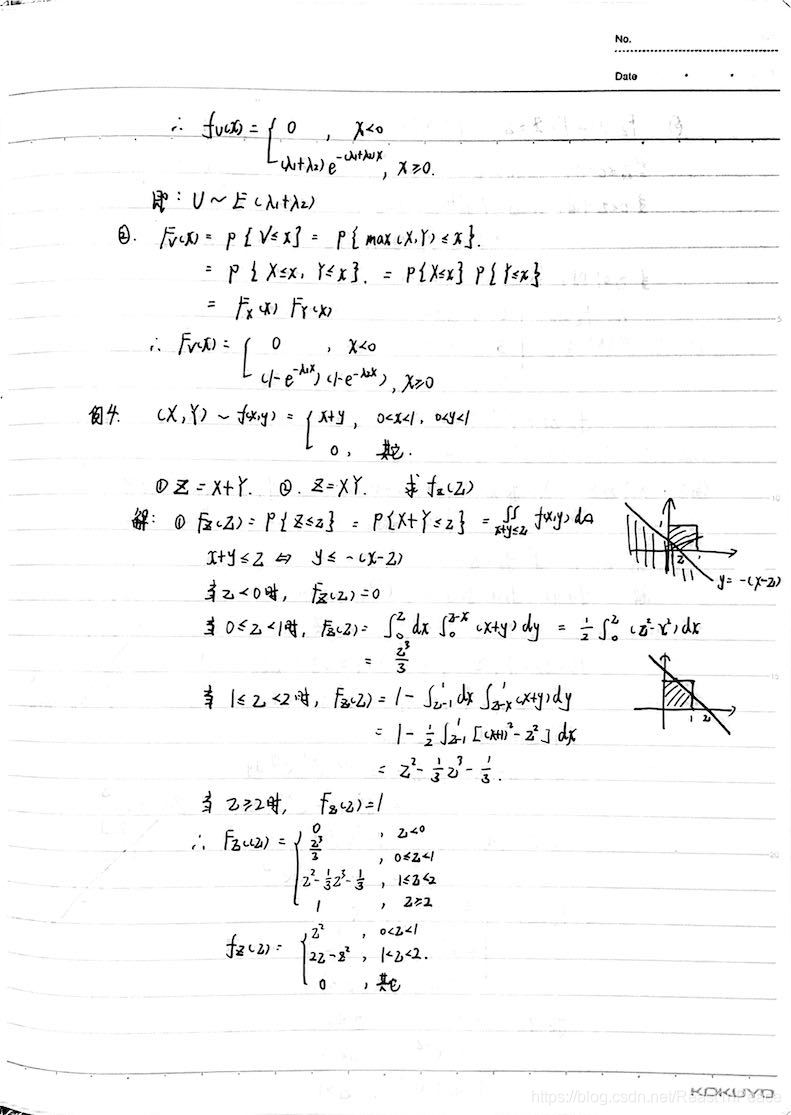 No.
Date
∴ f_U(x) = { 0 , x<0
(λ1+λ2) e^{-(λ1+λ2)x} , x≥0.
即: U ~ E(λ1+λ2)
②. F_V(x) = P{V≤x} = P{max(X,Y)≤x}.
= P{X≤x, Y≤x}. = P{X≤x} P{Y≤x}
= F_X(x) F_Y(x)
∴ F_V(x) = { 0 , x<0
(1-e^{-λ1x})(1-e^{-λ2x}) , x≥0
例4. (X,Y) ~ f(x,y) = { x+y, 0<x<1, 0<y<1
0, 其它.
① Z=X+Y. ②. Z=XY. 求 f_Z(z)
解: ① F_Z(z) = P{Z≤z} = P{X+Y≤z} = ∬_{x+y≤z} f(x,y) dσ
x+y≤z ⇔ y≤-(x-z)
z
y=-(x-z)
当z<0时, F_Z(z)=0
当 0≤z<1时, F_Z(z)= ∫_0^z dx ∫_0^{z-x} (x+y)dy = 1/2 ∫_0^z (z²-x²)dx
= z³/3
当 1≤z<2时, F_Z(z)= 1-∫_{z-1}^1 dx ∫_{z-x}^1 (x+y)dy
1 z
= 1-1/2 ∫_{z-1}^1 [(x+1)²-z²] dx
= z²-1/3 z³-1/3.
当 z≥2时, F_Z(z)=1
∴ F_Z(z) = { 0 , z<0
z³/3 , 0≤z<1
z²-1/3z³-1/3 , 1≤z<2
1 , z≥2
f_Z(z) = { z² , 0<z<1
2z-z² , 1<z<2.
0 , 其它
5
10
15
20
KOKUYO